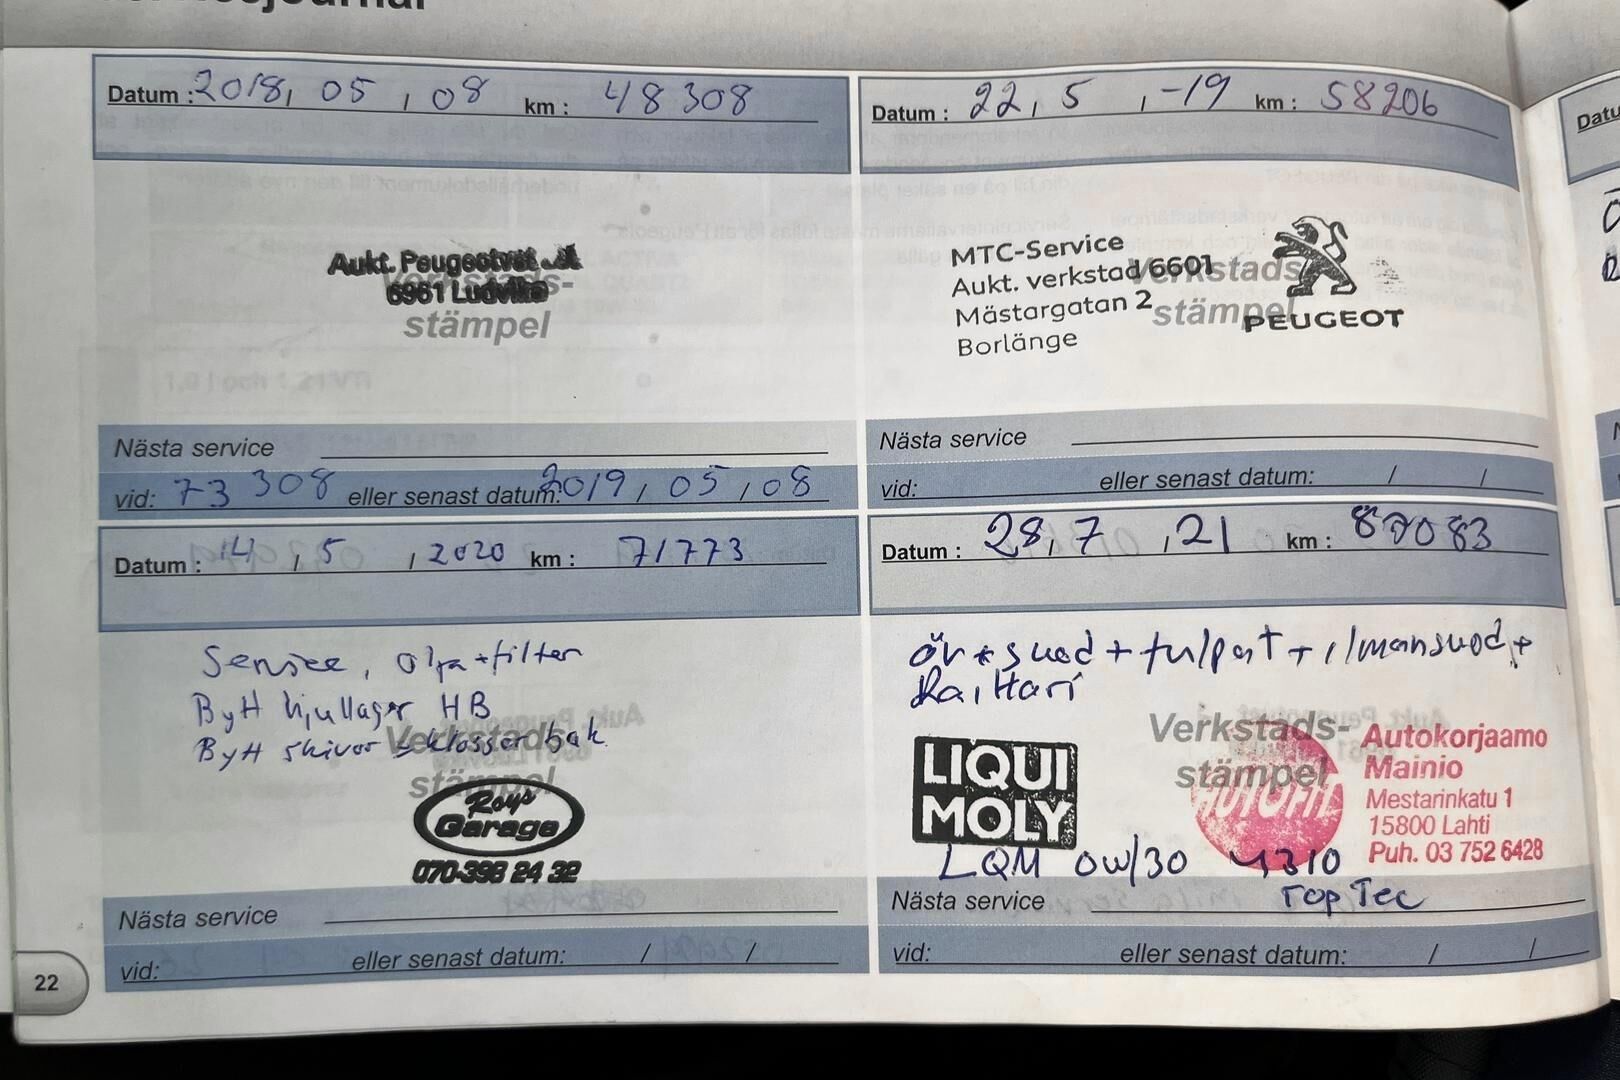 Datum : 2018, 05 , 08 km : 48 308
Aukt. Peugeotverkst
6961 Ludvika
Verkstads-
stämpel
Nästa service
vid: 73 308 eller senast datum: 2019 , 05 , 08
Datum : 22, 5 , -19 km : 58206
MTC-Service
Aukt. verkstad 6601
Mästargatan 2
Borlänge
Verkstads
stämpel
PEUGEOT
Nästa service
vid: eller senast datum: / /
Datum : 14 , 5 , 2020 km : 71773
Service, olja + filter
Bytt hjullager HB
Bytt skivor + klosser bak
Verkstads-
stämpel
Roys
Garage
070-398 24 32
Nästa service
vid: eller senast datum: / /
Datum : 28, 7 , 21 km : 87083
öv + suod + tulpat + ilmansuod +
Raitari
Verkstads-
stämpel
LIQUI
MOLY
AUTOFIT
Autokorjaamo
Mainio
Mestarinkatu 1
15800 Lahti
Puh. 03 752 6428
LQM 0W/30 4310
Top Tec
Nästa service
vid: eller senast datum: / /
22
Datu